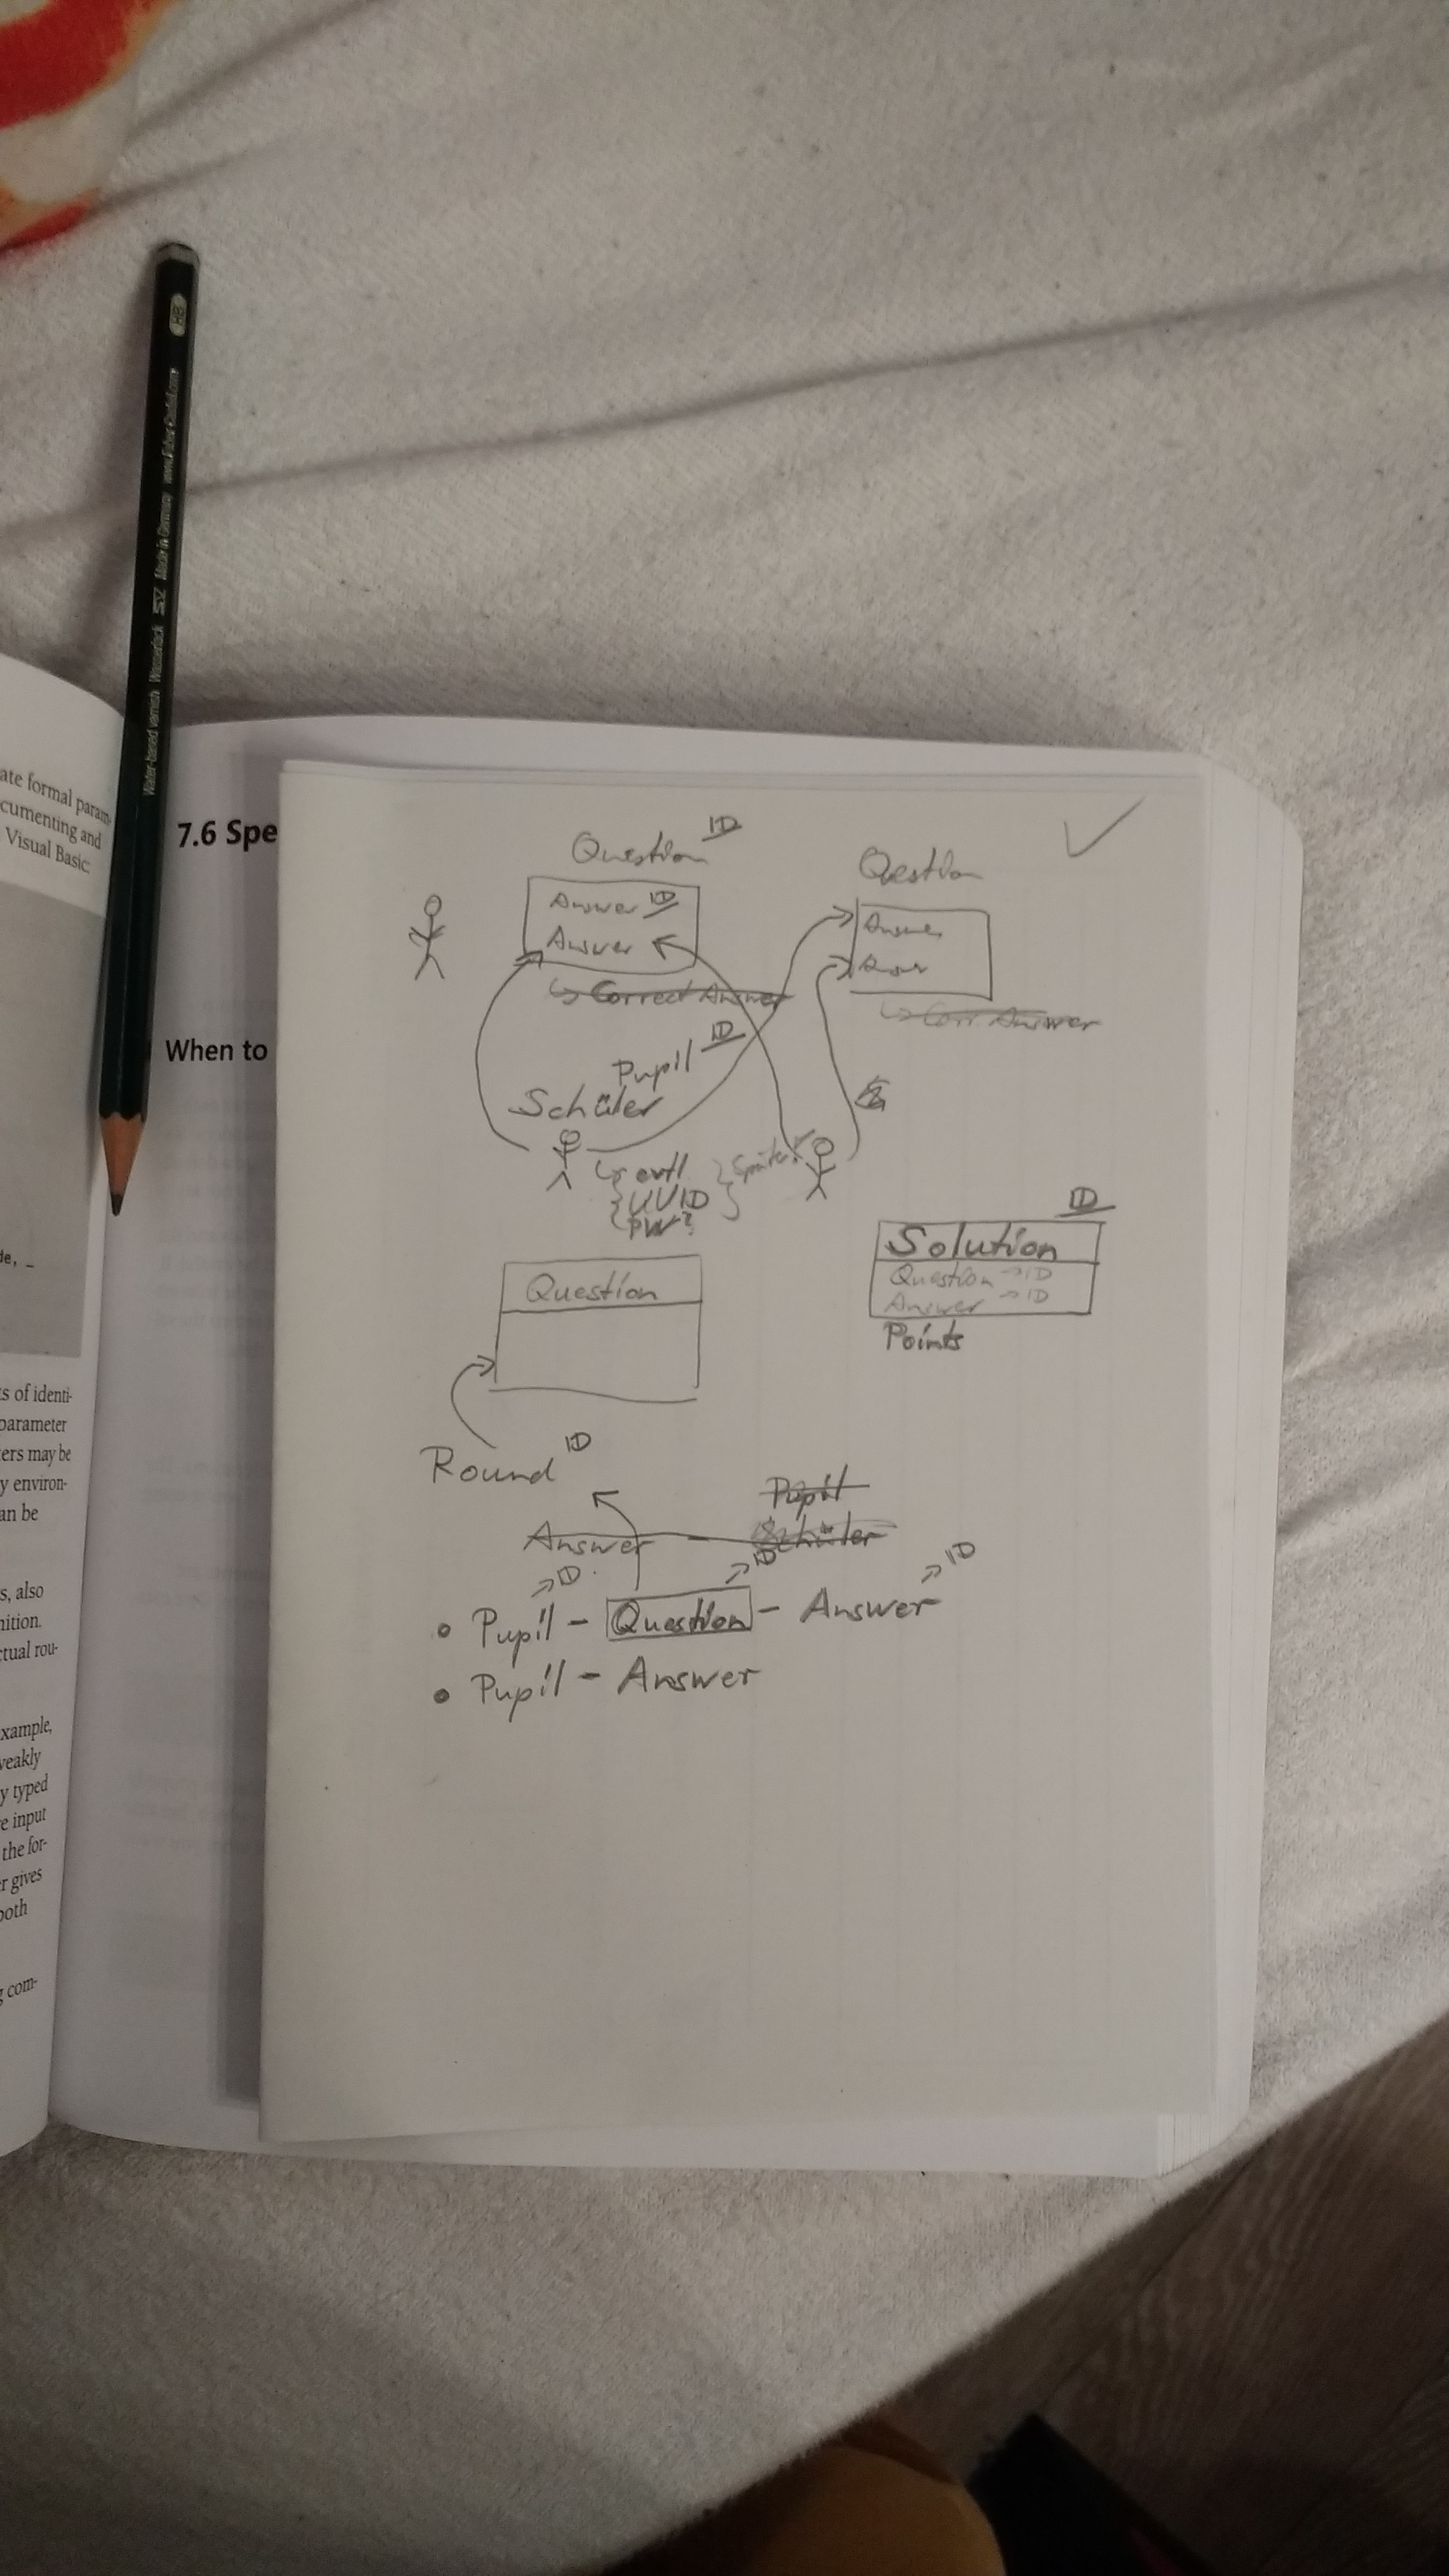 HB
Water-based varnish Wasserlack SV Made in Germany www.Faber-Castell.com
ate formal param-
cumenting and
Visual Basic:
de, _
s of identi-
parameter
ers may be
y environ-
an be
s, also
nition.
ctual rou-
xample,
veakly
y typed
e input
the for-
r gives
both
g com-
7.6 Spe
When to
Question ID
Answer ID
Answer
↳ Correct Answer
Question
Answer
Answer
↳ Corr Answer
Pupil ID
Schüler
↳ evtl
UUID
PW?
Später!
ID
Solution
Question → ID
Answer → ID
Points
Question
Round ID
Pupil
Answer - Schüler
→ ID
→ ID
→ ID
• Pupil - Question - Answer
• Pupil - Answer